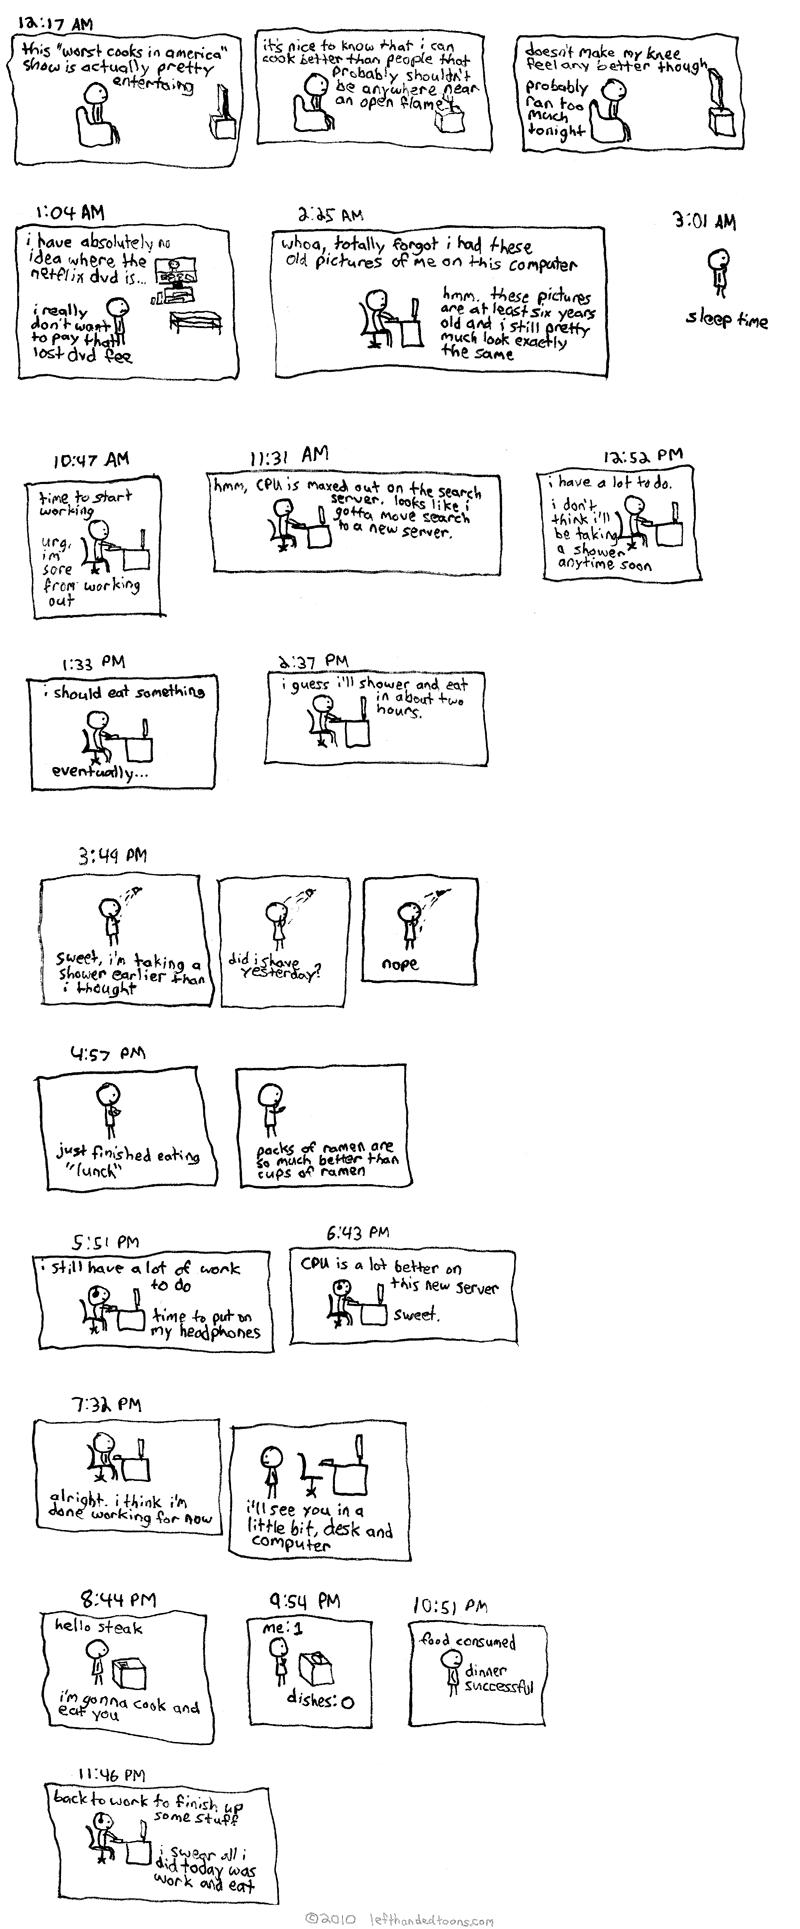 12:17 AM
this "worst cooks in america"
show is actually pretty
entertaing
it's nice to know that i can
cook better than people that
probably shouldn't
be anywhere near
an open flame
doesn't make my knee
feel any better though
probably
ran too
much
tonight
1:04 AM
i have absolutely no
idea where the
netflix dvd is...
i really
don't want
to pay that
lost dvd fee
2:25 AM
whoa, totally forgot i had these
old pictures of me on this computer
hmm. these pictures
are at least six years
old and i still pretty
much look exactly
the same
3:01 AM
sleep time
10:47 AM
time to start
working
urg,
im
sore
from working
out
11:31 AM
hmm, CPU is maxed out on the search
server. looks like i
gotta move search
to a new server.
12:52 PM
i have a lot to do.
i don't
think i'll
be taking
a shower
anytime soon
1:33 PM
i should eat something
eventually...
2:37 PM
i guess i'll shower and eat
in about two
hours.
3:49 PM
sweet, i'm taking a
shower earlier than
i thought
did i shave
yesterday?
nope
4:57 PM
just finished eating
"lunch"
packs of ramen are
so much better than
cups of ramen
5:51 PM
i still have a lot of work
to do
time to put on
my headphones
6:43 PM
CPU is a lot better on
this new server
sweet.
7:32 PM
alright. i think i'm
done working for now
i'll see you in a
little bit, desk and
computer
8:44 PM
hello steak
i'm gonna cook and
eat you
9:54 PM
me: 1
dishes: 0
10:51 PM
food consumed
dinner
successful
11:46 PM
back to work to finish up
some stuff
i swear all i
did today was
work and eat
©2010 lefthandedtoons.com